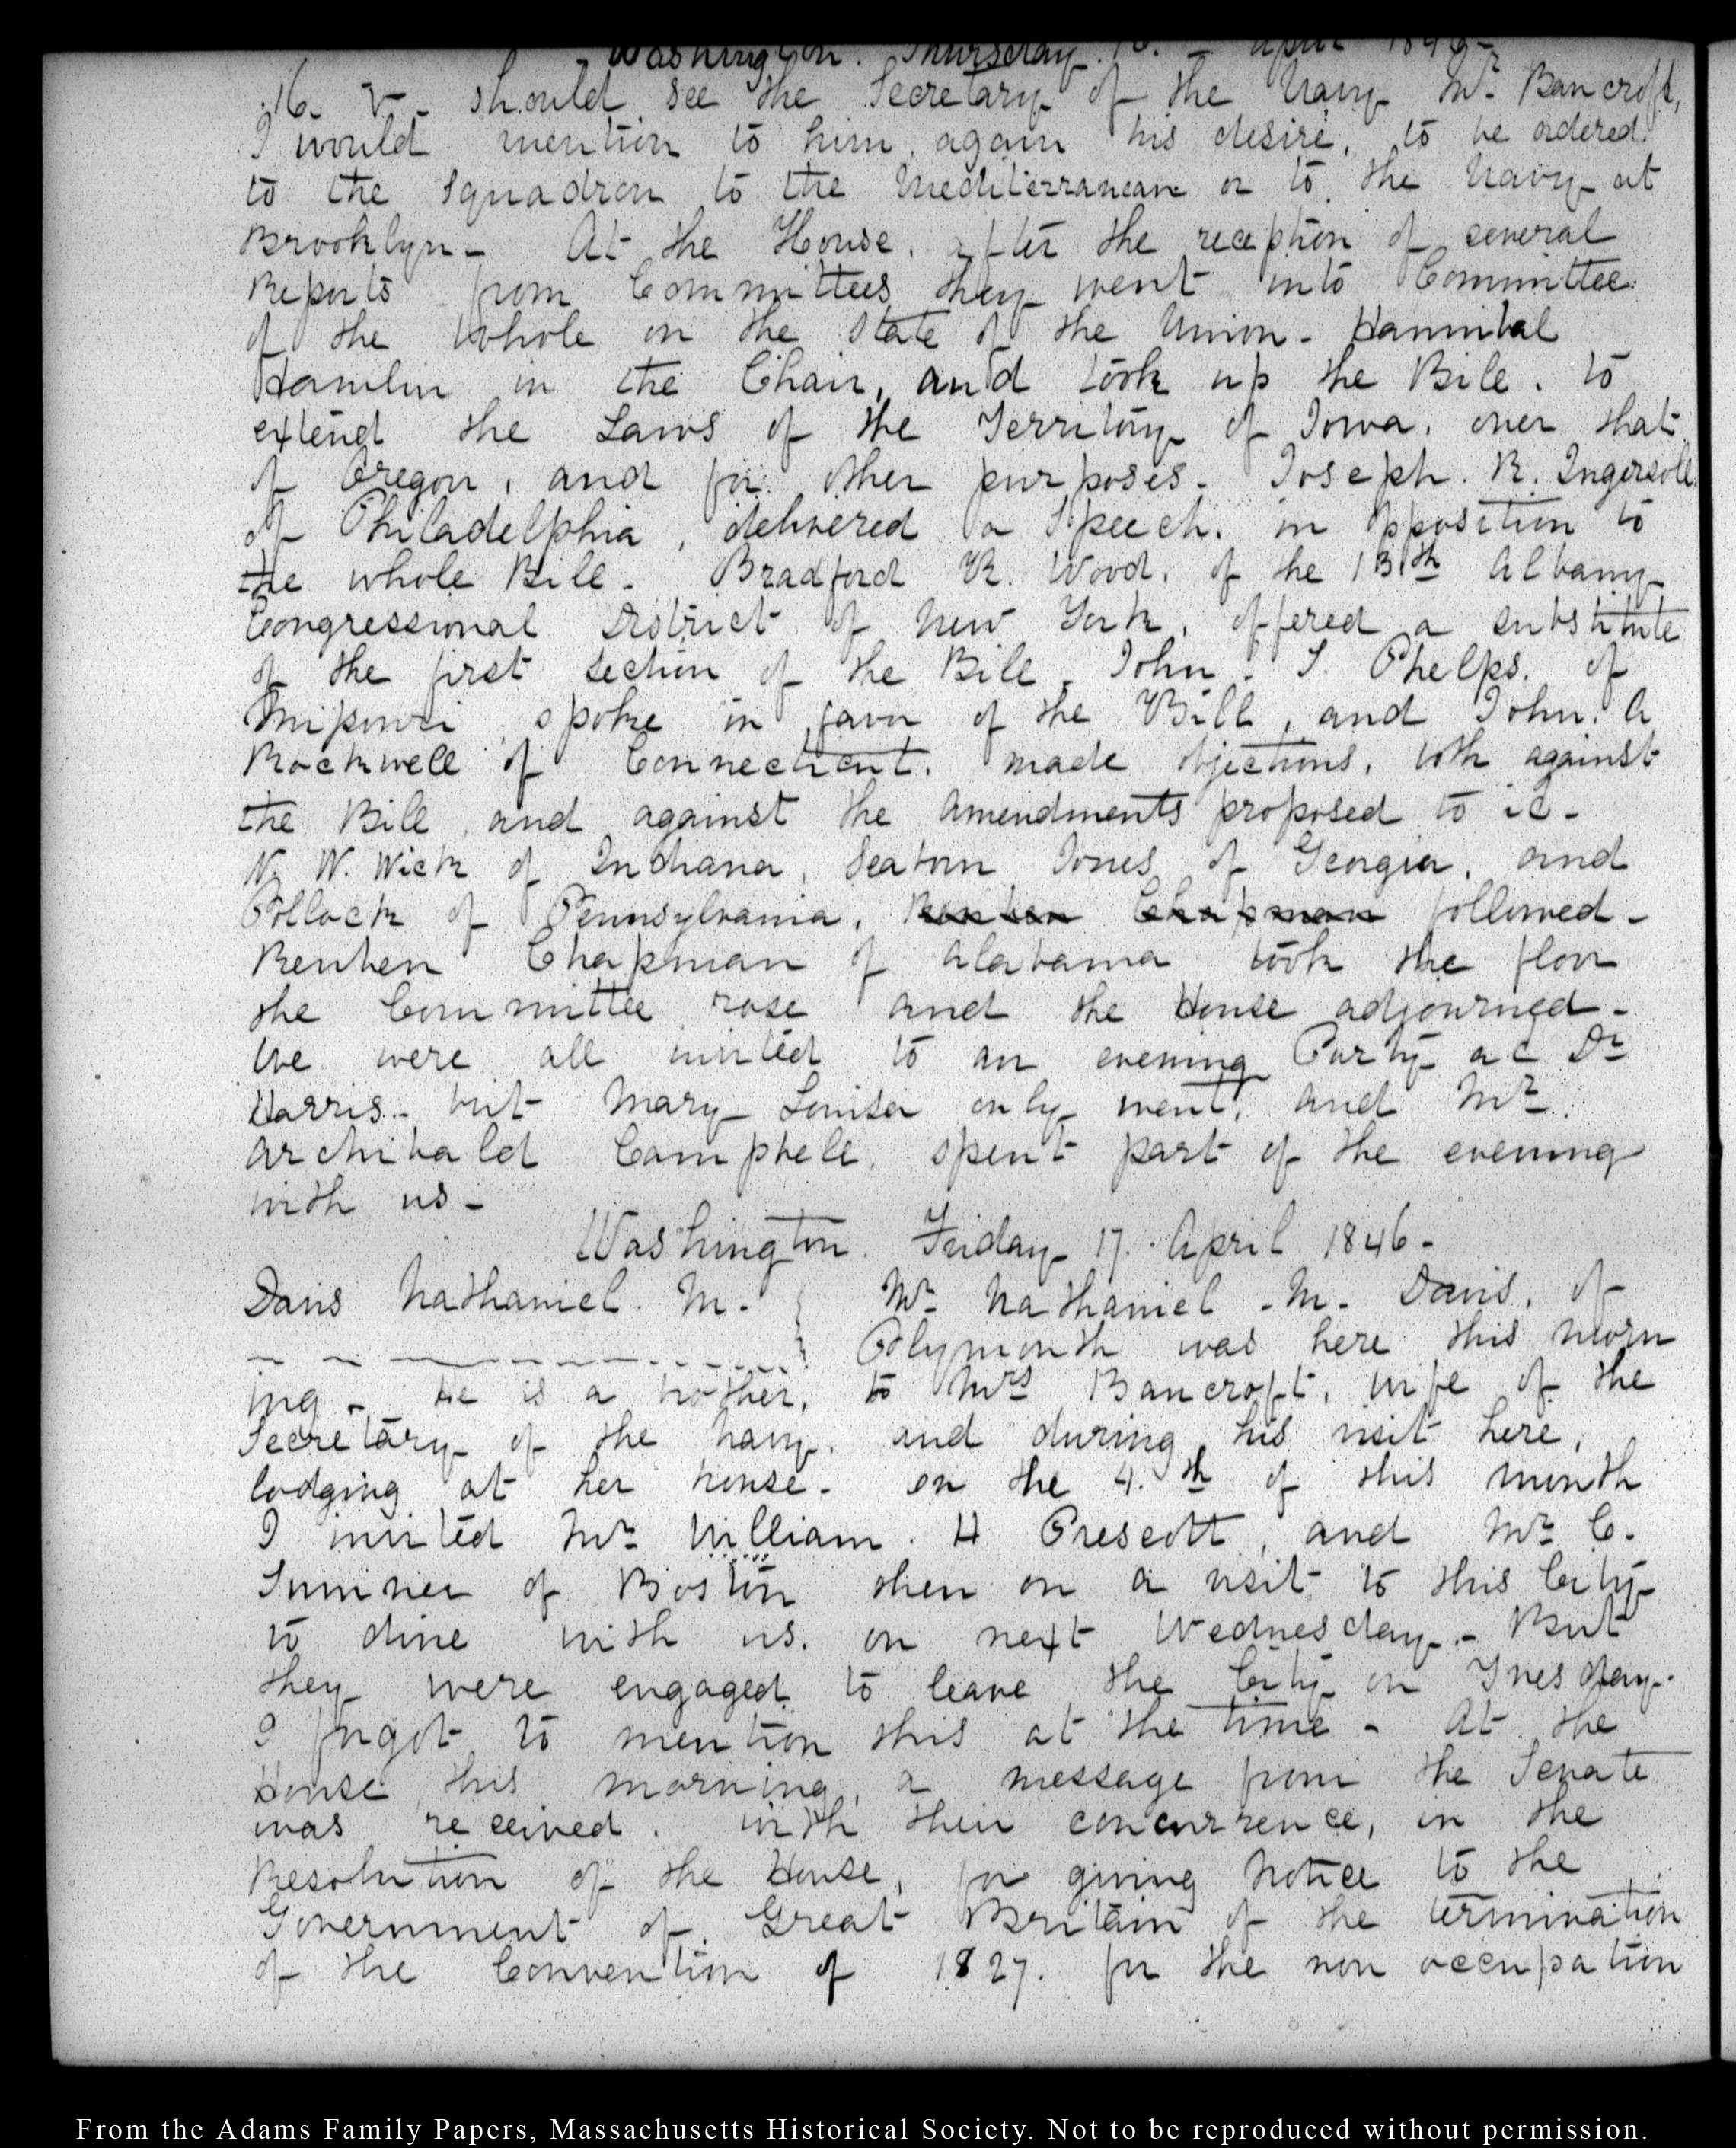 Washington. Thursday 16. - April 1846-
16. V- should see the Secretary of the Navy Mr. Bancroft,
I would mention to him again his desire, to be ordered
to the Squadron to the Mediterranean or to the Navy at
Brooklyn- At the House, after the reception of several
Reports from Committees they went into Committee
of the whole on the State of the Union- Hannibal
Hamlin in the Chair, and took up the Bill. to
extend the Laws of the Territory of Iowa, over that
of Oregon, and for other purposes- Joseph. R. Ingersoll
of Philadelphia, delivered a Speech, in opposition to
the whole Bill- Bradford R. Wood, of the 13th Albany
Congressional District of New York, offered a substitute
of the first section of the Bill. John. S. Phelps. of
Missouri spoke in favor of the Bill, and John. A
Rockwell of Connecticut. made objections, both against
the Bill and against the Amendments proposed to it-
N. W. Wick of Indiana, Seaborn Jones of Georgia, and
Pollock of Pennsylvania, Reuben Chapman followed-
Reuben Chapman of Alabama took the floor
the Committee rose and the House adjourned-
We were all invited to an evening Party at Dr
Harris- but Mary Louisa only went, and Mr.
Archibald Campbell, spent part of the evening
with us-
Washington. Friday 17. April 1846-
Davis Nathaniel. M. } Mr Nathaniel -M- Davis, of
Plymouth was here this morn
ing- He is a brother, to Mrs Bancroft, wife of the
Secretary of the Navy. and during his visit here,
lodging at her house- on the 4.th of this month
I invited Mr William. H Prescott, and Mr C.
Sumner of Boston then on a visit to this City
to dine with us. on next Wednesday- But
they were engaged to leave the City on Tuesday-
I forgot to mention this at the time- At the
House this morning, a message from the Senate
was received. with their concurrence, in the
Resolution of the House, for giving Notice to the
Government of Great Britain of the termination
of the Convention of 1827. for the non occupation
From the Adams Family Papers, Massachusetts Historical Society. Not to be reproduced without permission.